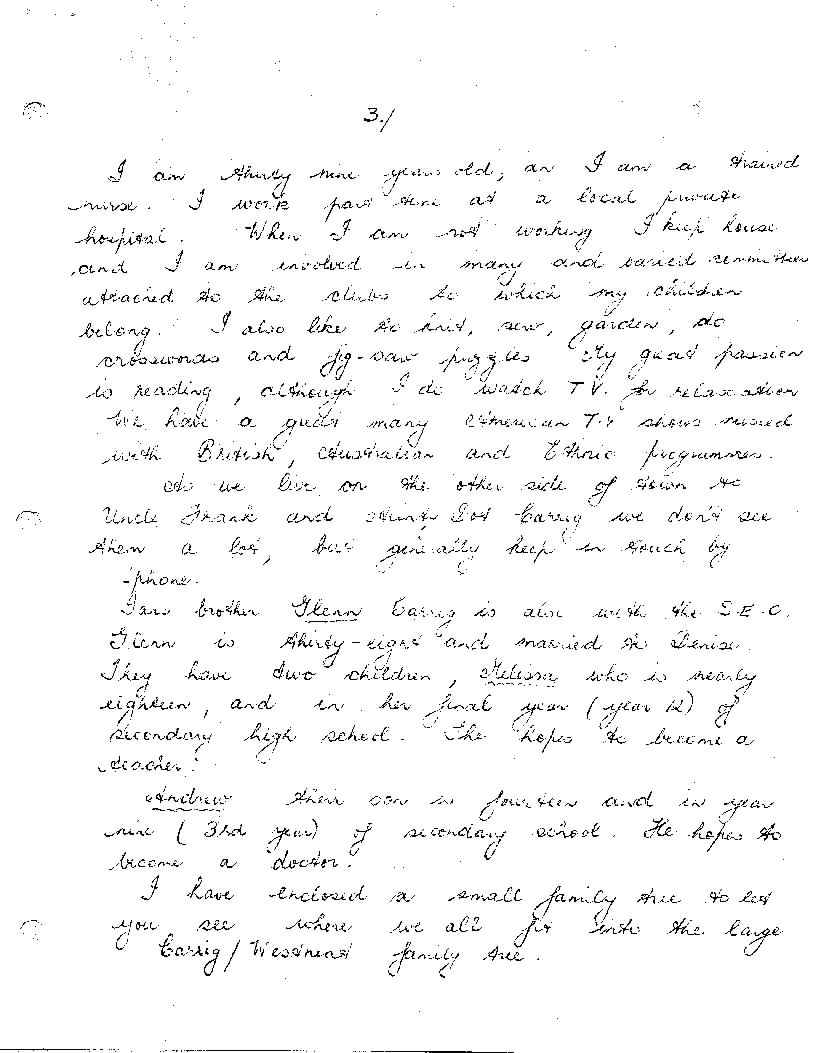 3./
I am thirty nine years old, an I am a trained
nurse. I work part time at a local private
hospital. When I am not working I keep house
and I am involved in many and varied committees
attached to the clubs to which my children
belong. I also like to knit, sew, garden, do
crosswords and jig-saw puzzles My great passion
is reading, although I do watch T.V. for relaxation
We have a great many American T.V shows mixed
with British, Australian and Ethnic programmes.
As we live on the other side of town to
Uncle Frank and Aunty Dot Carrig we don't see
them a lot, but generally keep in touch by
-phone.
Ians brother Glenn Carrig is also with the S.E.C.
Glenn is thirty-eight and married to Denise.
They have two children, Melissa who is nearly
eighteen, and in her final year (year 12) of
secondary high school. She hopes to become a
teacher.
Andrew their son is fourteen and in year
nine (3rd year) of secondary school. He hopes to
become a doctor.
I have enclosed a small family tree to let
you see where we all fit into the large
Carrig/Westhead family tree.